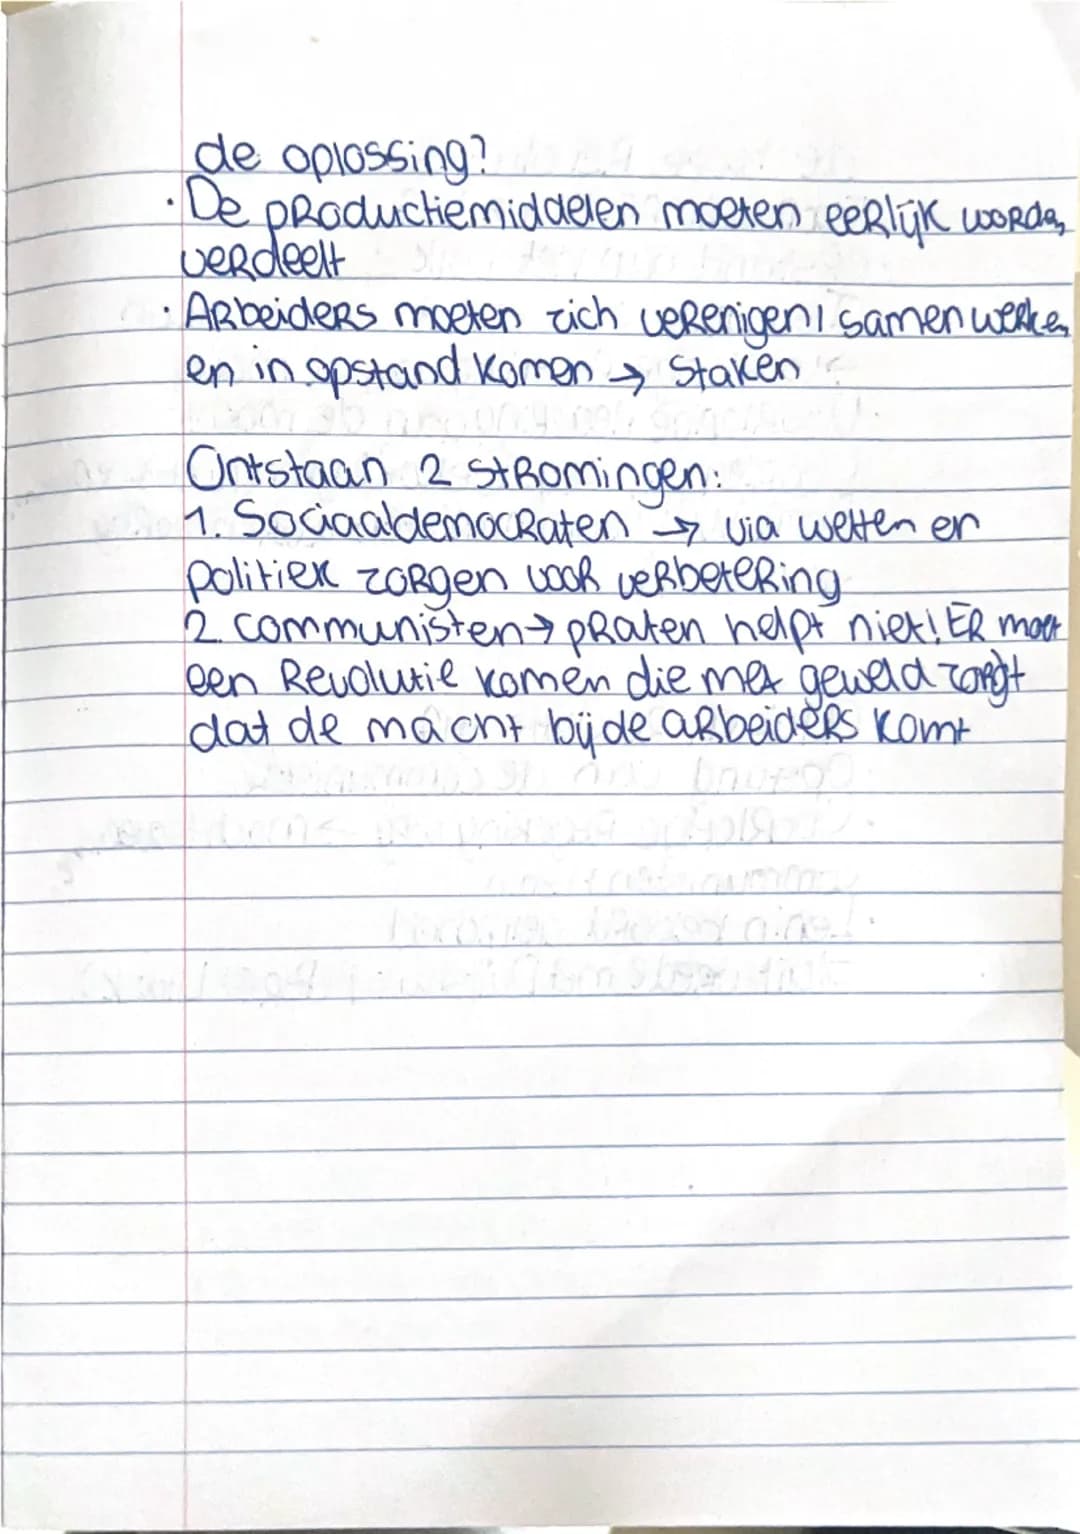 de oplossing?
· De productiemiddelen moeten eerlijk worden
verdeelt
· Arbeiders moeten zich verenigen, samenwerken
en in opstand komen → staken
Ontstaan 2 stromingen:
1. Sociaaldemocraten → via wetten en
politiek zorgen voor verbetering
2. communisten → praten helpt niet! Er moet
een Revolutie komen die met geweld zorgt
dat de macht bij de arbeiders komt